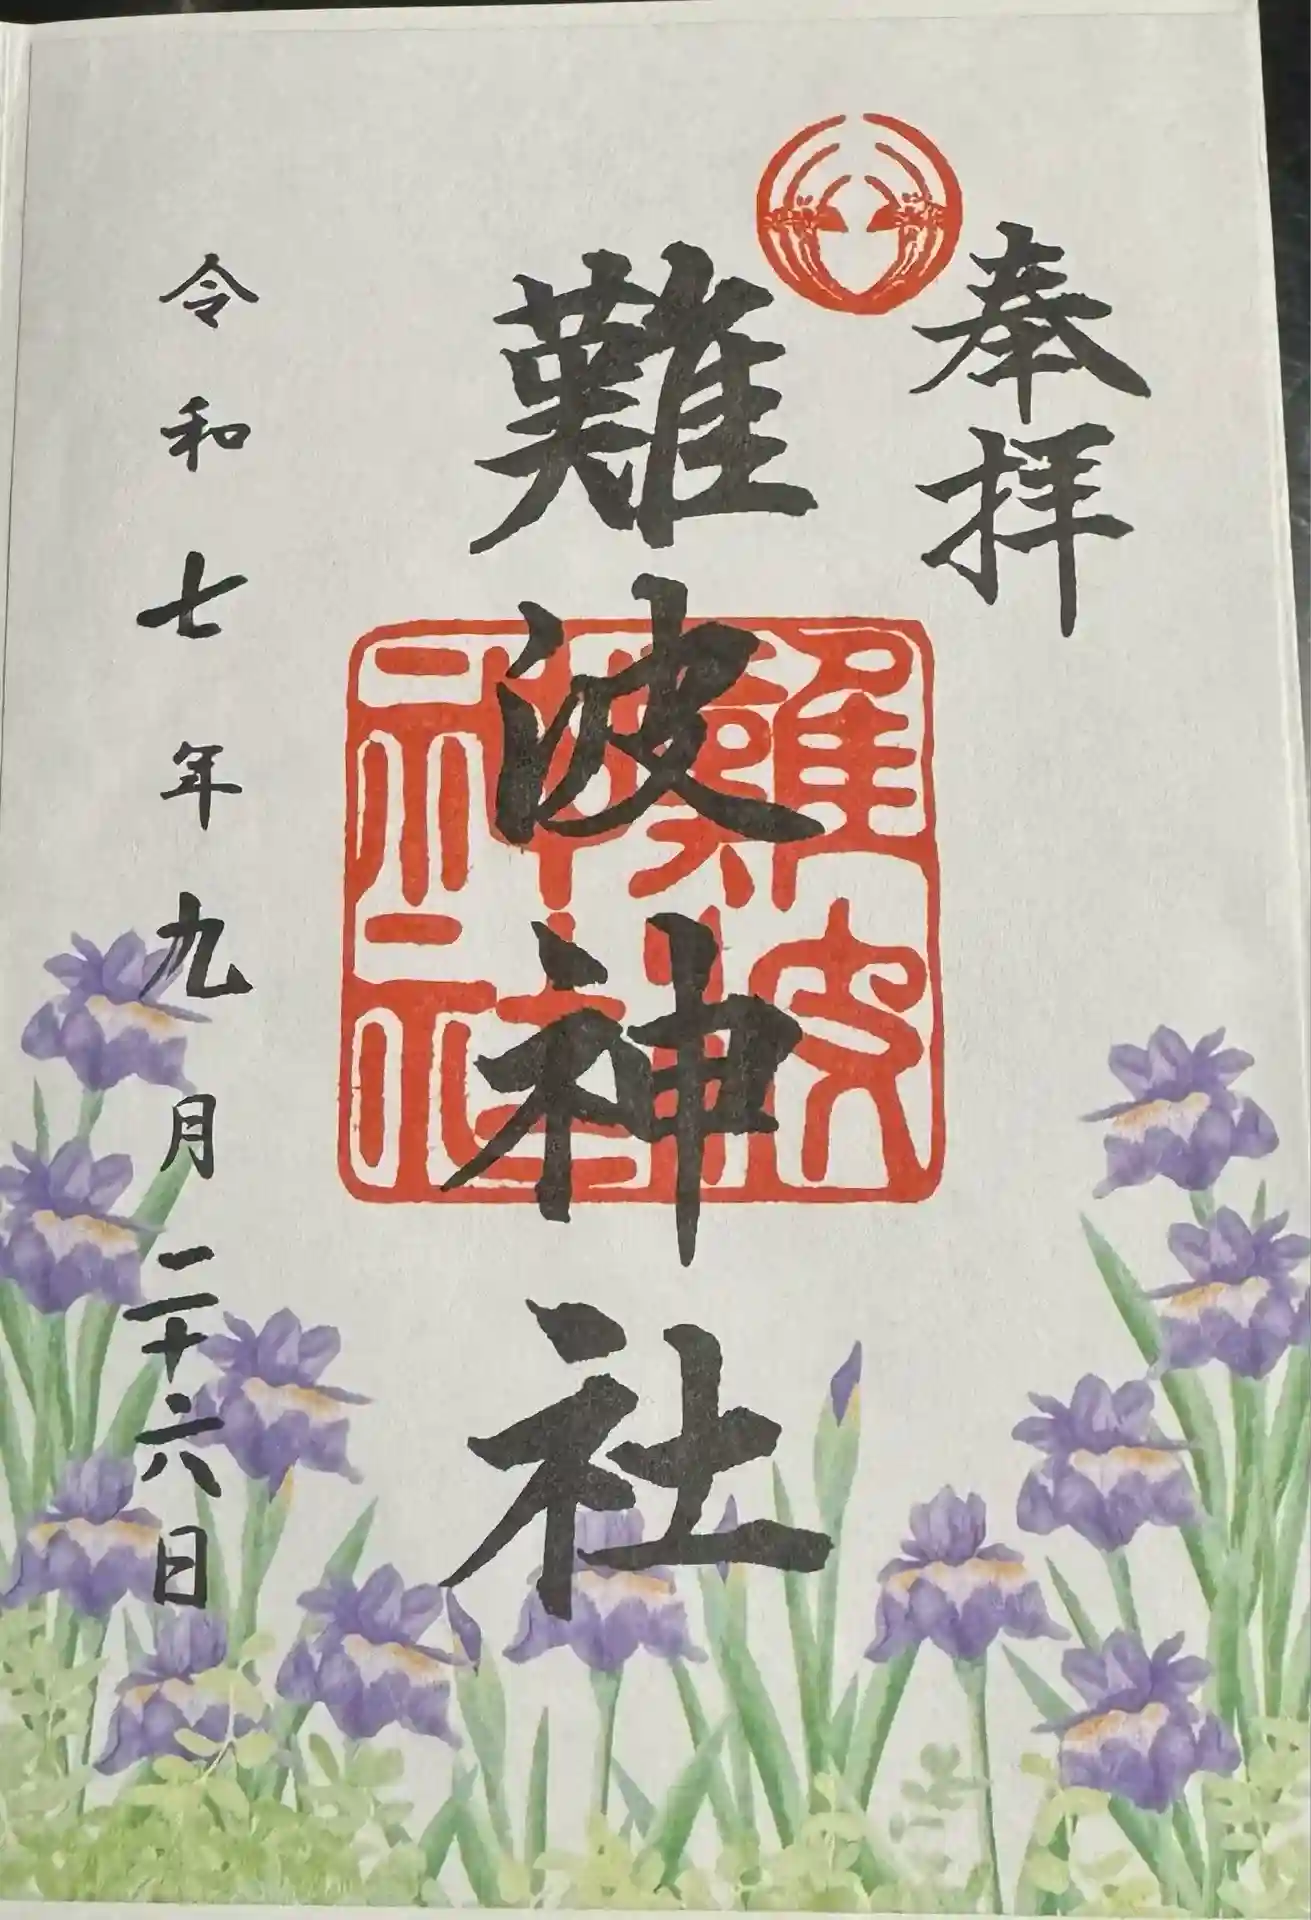 奉拝
難波神社
難波神社
令和七年九月二十六日